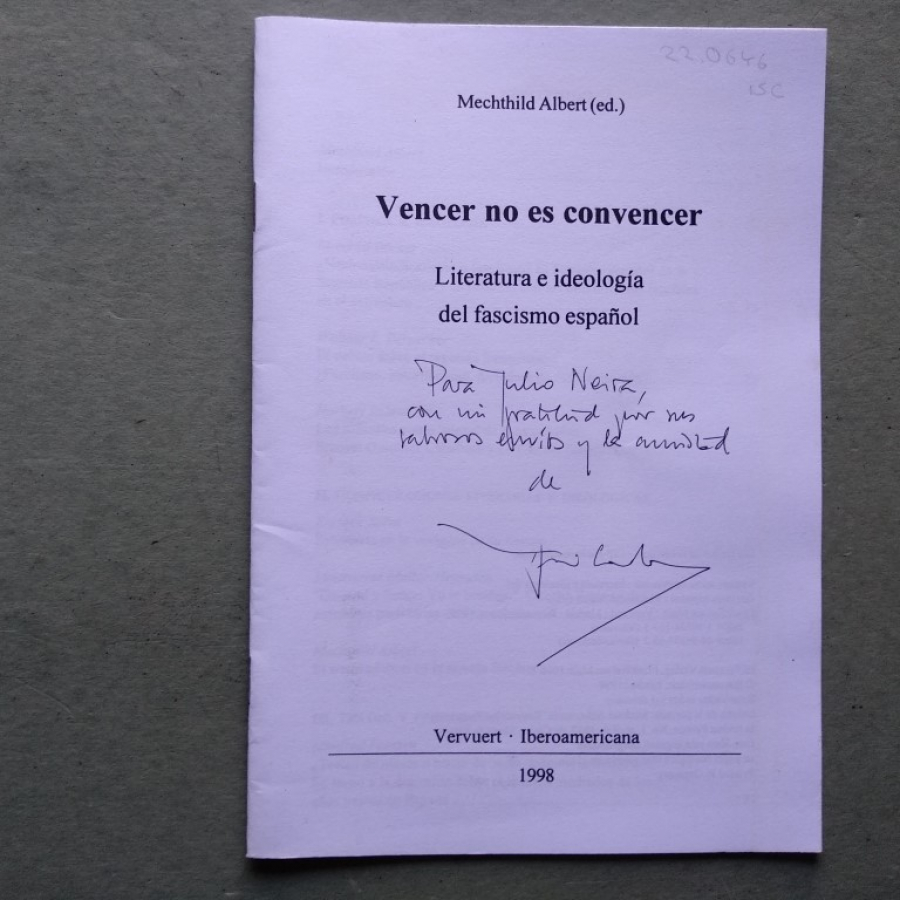 22.0646
ISC
Mechthild Albert (ed.)
Vencer no es convencer
Literatura e ideología
del fascismo español
Para Julio Neira,
con mi gratitud por sus
valiosos envíos y la amistad
de
Vervuert · Iberoamericana
1998